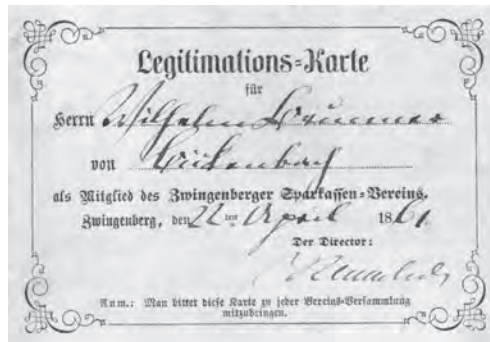 Legitimations-Karte
für
Herrn Wilhelm Brunner
von Bickenbach
als Mitglied des Zwingenberger Sparkassen-Vereins.
Zwingenberg, den 22ten April 1861.
Der Director:
Anm.: Man bittet diese Karte zu jeder Vereins-Versammlung
mitzubringen.